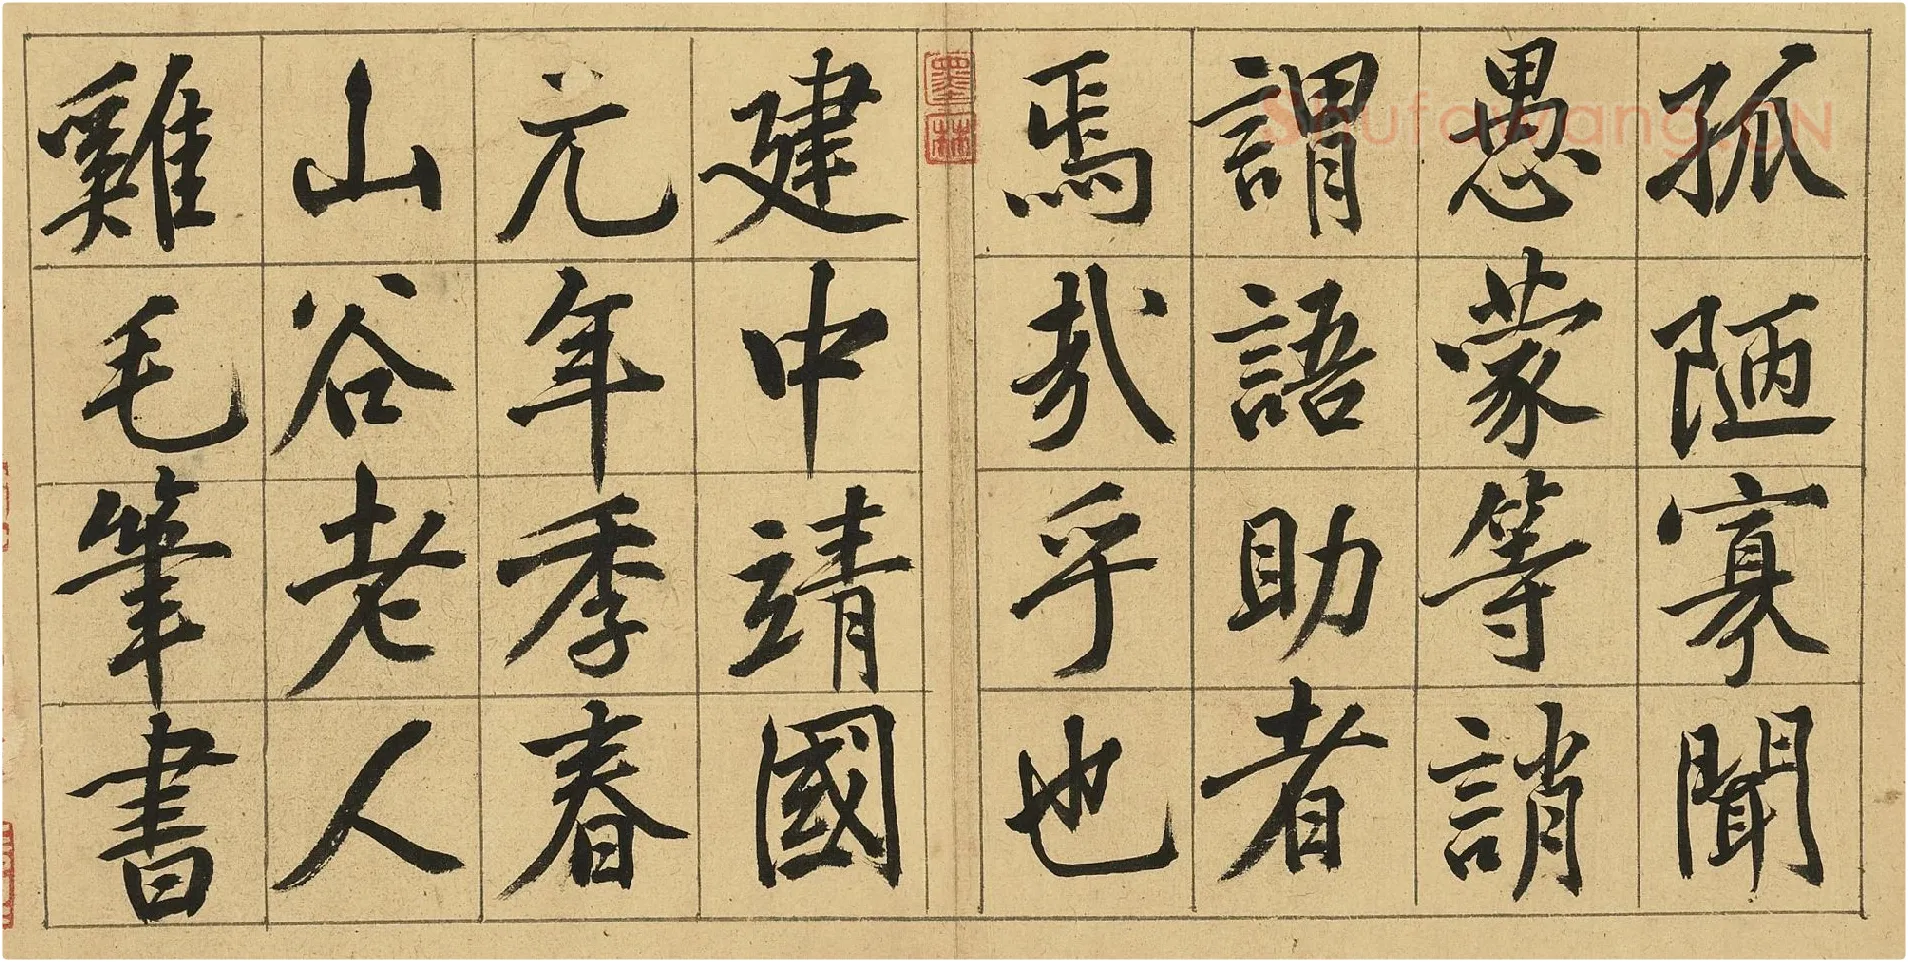 孤陋寡聞
愚蒙等誚
謂語助者
焉哉乎也
建中靖國
元年季春
山谷老人
雞毛筆書
墨林
Shufawang.CN